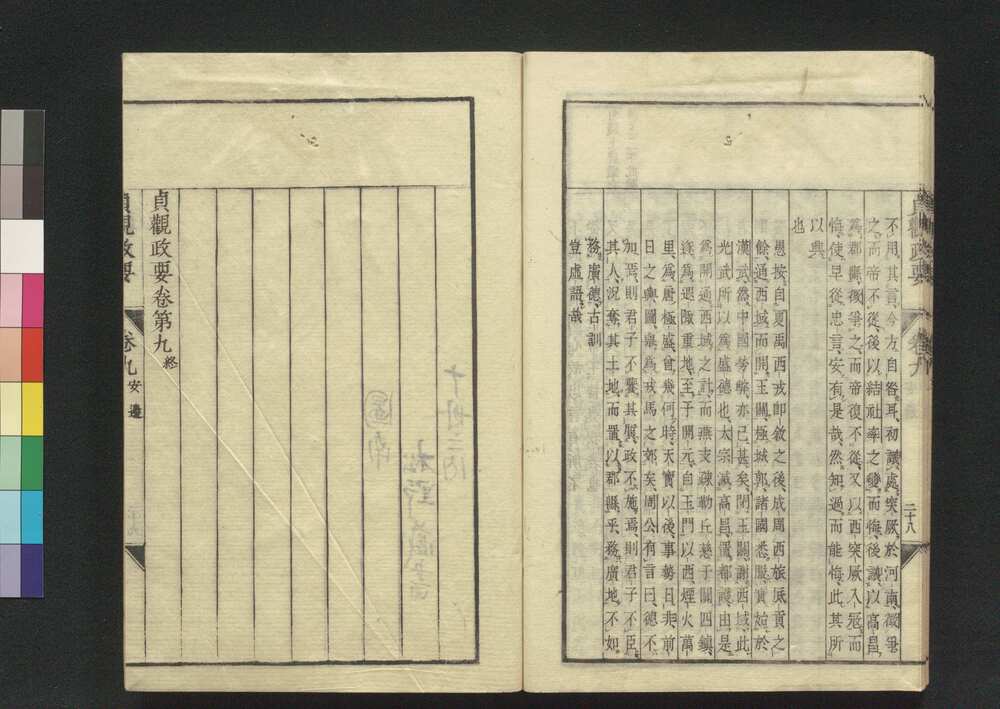 貞觀政要
卷九
二十八
不用其言今方自咎耳初議處突厥於河南魏爭
之而帝不從後以結社率之變而悔後議以高昌
爲郡縣徵爭之而帝復不從又以西突厥入寇而
悔使早從忠言安有是哉然知過而能悔此其所
以興
也
愚按自夏禹西戎即敘之後成周西旅底貢之
餘通西域而開玉關極城郭諸國悉服實始於
漢武然中國勞弊亦已甚矣閉玉關謝西域此
光武所以爲盛德也太宗滅高昌置都護由是
爲開通西域之計而燕支疎勒丘慈于闐四鎮
遂爲遐陬重地至于開元自玉門以西煙火萬
里爲唐極盛曾幾何時天寶以後事勢日非前
日之輿圖舉爲戎馬之郊矣周公有言曰德不
加焉則君子不饗其贄政不施焉則君子不臣
其人況奪其土地而置以郡縣乎務廣地不如
務廣德古訓
豈虛語哉
貞觀政要卷第九終
貞觀政要
卷九
安邊